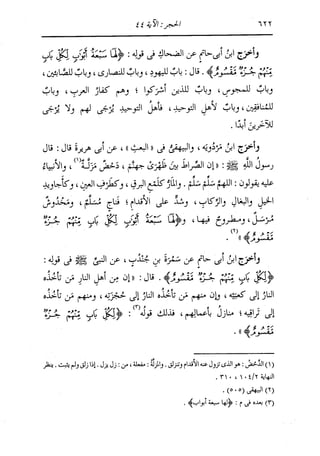 ٦٢٢ الحجر: الآية ٤٤
وأخرج ابنُ أبى حاتمٍ عن الضحاكِ فى قولِه : ﴿لَهَا سَبْعَةُ أَبْوَابٍ لِّكُلِّ بَابٍ
مِّنْهُمْ جُزْءٌ مَّقْسُومٌ﴾ . قال : بابٌ لليهودِ ، وبابٌ للنصارى ، وبابٌ للصابئين ،
وبابٌ للمجوسِ ، وبابٌ للذين أشرَكوا ؛ وهم كفارُ العربِ ، وبابٌ
للمنافقين ، وبابٌ لأهلِ التوحيدِ ، فأهلُ التوحيدِ يُرْجَى لهم ولا يُرْجَى
للآخرين أبدًا .
وأخرج ابنُ مَرْدُويَه ، والبيهقىُّ فى « البعثِ » ، عن أبى هريرةَ قال : قال
رسولُ اللَّهِ ﷺ : « إن الصراطَ بينَ ظَهْرَىْ جهنَّمَ ، دَحْضٌ مَزَلَّةٌ (١) ، والأنبياءُ
عليه يقولون : اللهم سَلِّمْ سَلِّمْ . والمارُّ كلَمْعِ البرقِ ، وكطَرْفِ العينِ ، وكأجاويدِ
الخيلِ والبغالِ والرِّكابِ ، وشدٍّ على الأقدامِ ؛ فناجٍ مُسَلَّمٌ ، ومَخْدُوشٌ
مُرْسَلٌ ، ومطروحٌ فيها ، و﴿لَهَا سَبْعَةُ أَبْوَابٍ لِّكُلِّ بَابٍ مِّنْهُمْ جُزْءٌ
مَّقْسُومٌ﴾ » (٢) .
وأخرج ابنُ أبى حاتمٍ عن سَمُرَةَ بنِ جُنْدُبٍ ، عن النبىِّ ﷺ فى قولِه :
﴿لِّكُلِّ بَابٍ مِّنْهُمْ جُزْءٌ مَّقْسُومٌ﴾ . قال : « إن مِن أهلِ النارِ مَن تأخُذُه
النارُ إلى كعبَيْه ، وإن منهم مَن تأخُذُه النارُ إلى حُجْزَتِه ، ومنهم مَن تأخُذُه
إلى تَراقِيه ؛ منازلُ بأعمالِهم ، فذلك قولُه (٣) : ﴿لِّكُلِّ بَابٍ مِّنْهُمْ جُزْءٌ
مَّقْسُومٌ﴾ » .
(١) الدَّحْضُ : هو الذى تزول عنه الأقدام وتنزلق . والمزلة : مفعلة ، من : زل يزل . إذا زلق ولم يثبت . ينظر
النهاية ١٠٤/٢ ، ٣١٠ .
(٢) البيهقى (٥٠٥) .
(٣) بعده فى م : ﴿لها سبعة أبواب﴾ .